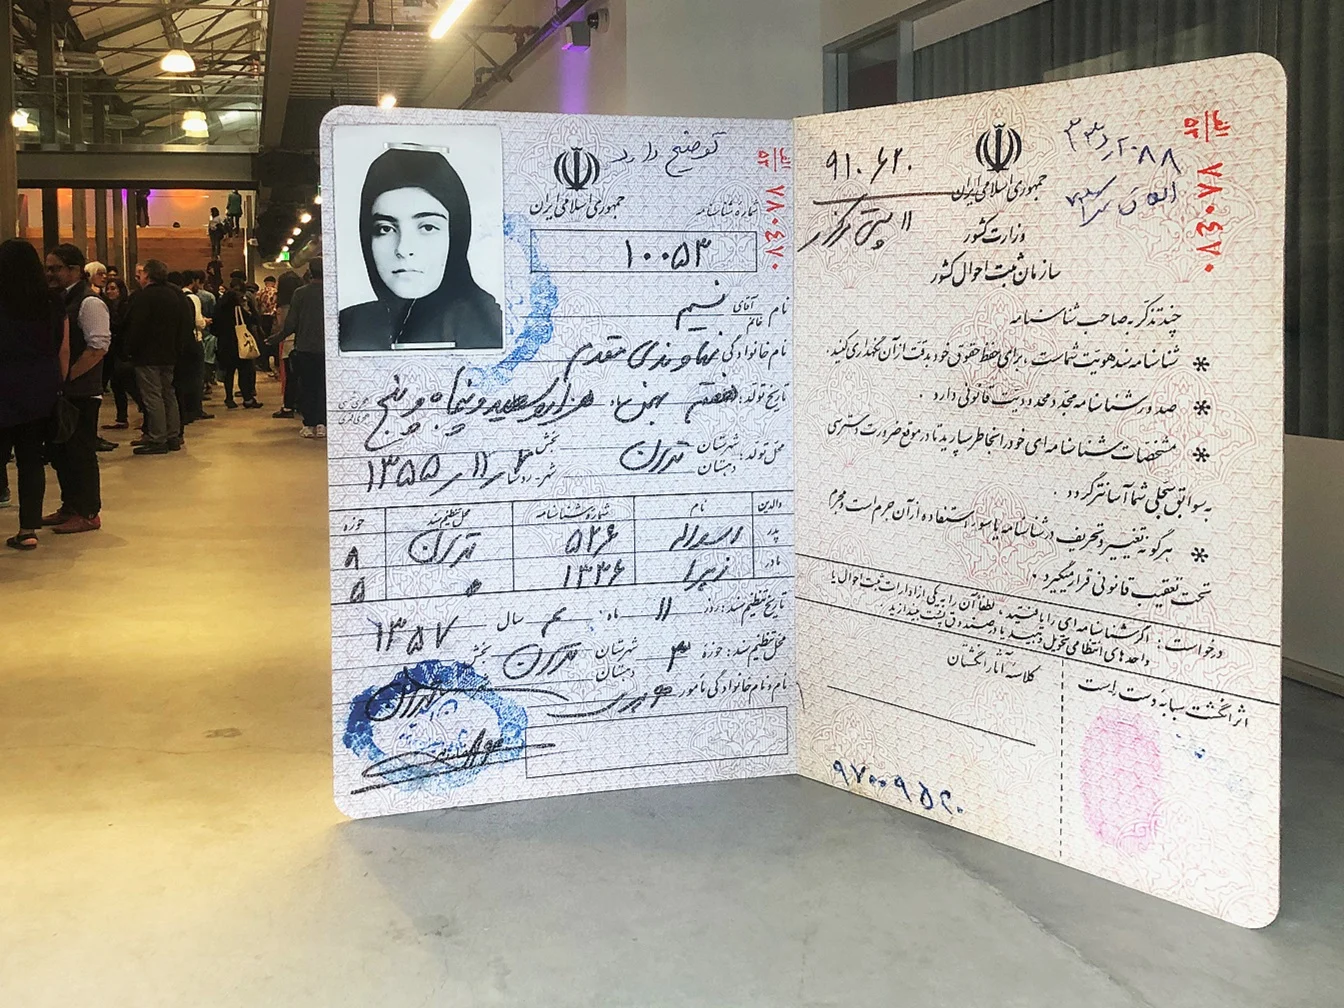 توضیح دارد
جمهوری اسلامی ایران
الف
۵۳
۷۸۰۴۷۰
شماره شناسنامه
۱۰۰۵۳
نام آقای خانم نسیم
نام خانوادگی نهاوندی مقدم
تاریخ تولد: هفتم بهمن ماه هزار و سیصد و پنجاه و پنج
محل تولد: شهرستان دهستان تهران بخش
۱۳۵۵ / ۱۱ /
والدین نام شماره شناسنامه محل تنظیم سند حوزه
پدر ۵۲۶ تهران
مادر زهرا ۱۳۳۶
تاریخ تنظیم سند: روز ۱۱ ماه سال ۱۳۵۷
محل تنظیم سند: حوزه ۳ شهرستان دهستان تهران بخش
نام و نام خانوادگی مأمور
الف
۵۳
۷۸۰۴۷۰
جمهوری اسلامی ایران
وزارت کشور
سازمان ثبت احوال کشور
چند تذکر به صاحب شناسنامه
* شناسنامه سند هویت شماست، برای حفظ حقوق خود بدقت از آن نگهداری کنید.
* صدور شناسنامه مجدد محدودیت قانونی دارد.
* مشخصات شناسنامه ای خود را بخاطر بسپارید تا در موقع ضرورت دسترسی
به سوابق سجلی شما آسانتر گردد.
* هرگونه تغییر و تحریف در شناسنامه یا سوء استفاده از آن جرم است و مجرم
تحت تعقیب قانونی قرار میگیرد.
درخواست: اگر شناسنامه ای را یافتید، لطفاً آن را به یکی از ادارات ثبت احوال یا
واحدهای انتظامی تحویل دهید یا در صندوق پست بیندازید.
کلاسه آثار انگشتان
اثر انگشت سبابه دست راست
۹۷۰۰۹۵۲۰